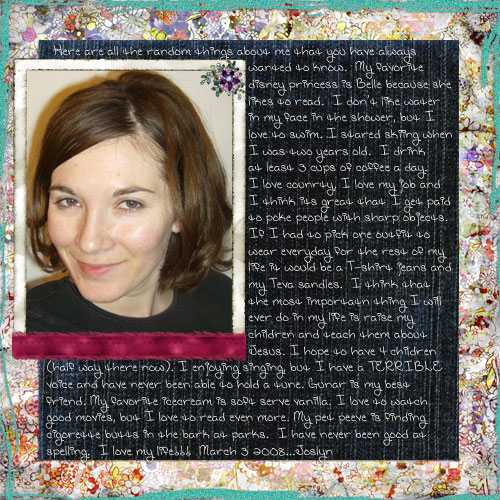 Here are all the random things about me that you have always
wanted to know. My favorite
disney princess is Belle because she
likes to read. I don't like water
in my face in the shower, but I
love to swim. I stared skiing when
I was two years old. I drink
at least 3 cups of coffee a day.
I love counrty, I love my job and
I think its great that I get paid
to poke people with sharp objects.
If I had to pick one outfit to
wear everyday for the rest of my
life it would be a T-shirt jeans and
my Teva sandles. I think that
the most importatn thing I will
ever do in my life is raise my
children and teach them about
Jesus. I hope to have 4 children
(half way there now). I enjoying singing, but I have a TERRIBLE
voice and have never been able to hold a tune. Gunar is my best
friend. My favorite icecream is soft serve vanilla. I love to watch
good movies, but I love to read even more. My pet peeve is finding
cigorette butts in the bark at parks. I have never been good at
spelling. I love my life!!! March 3 2008...Joslyn